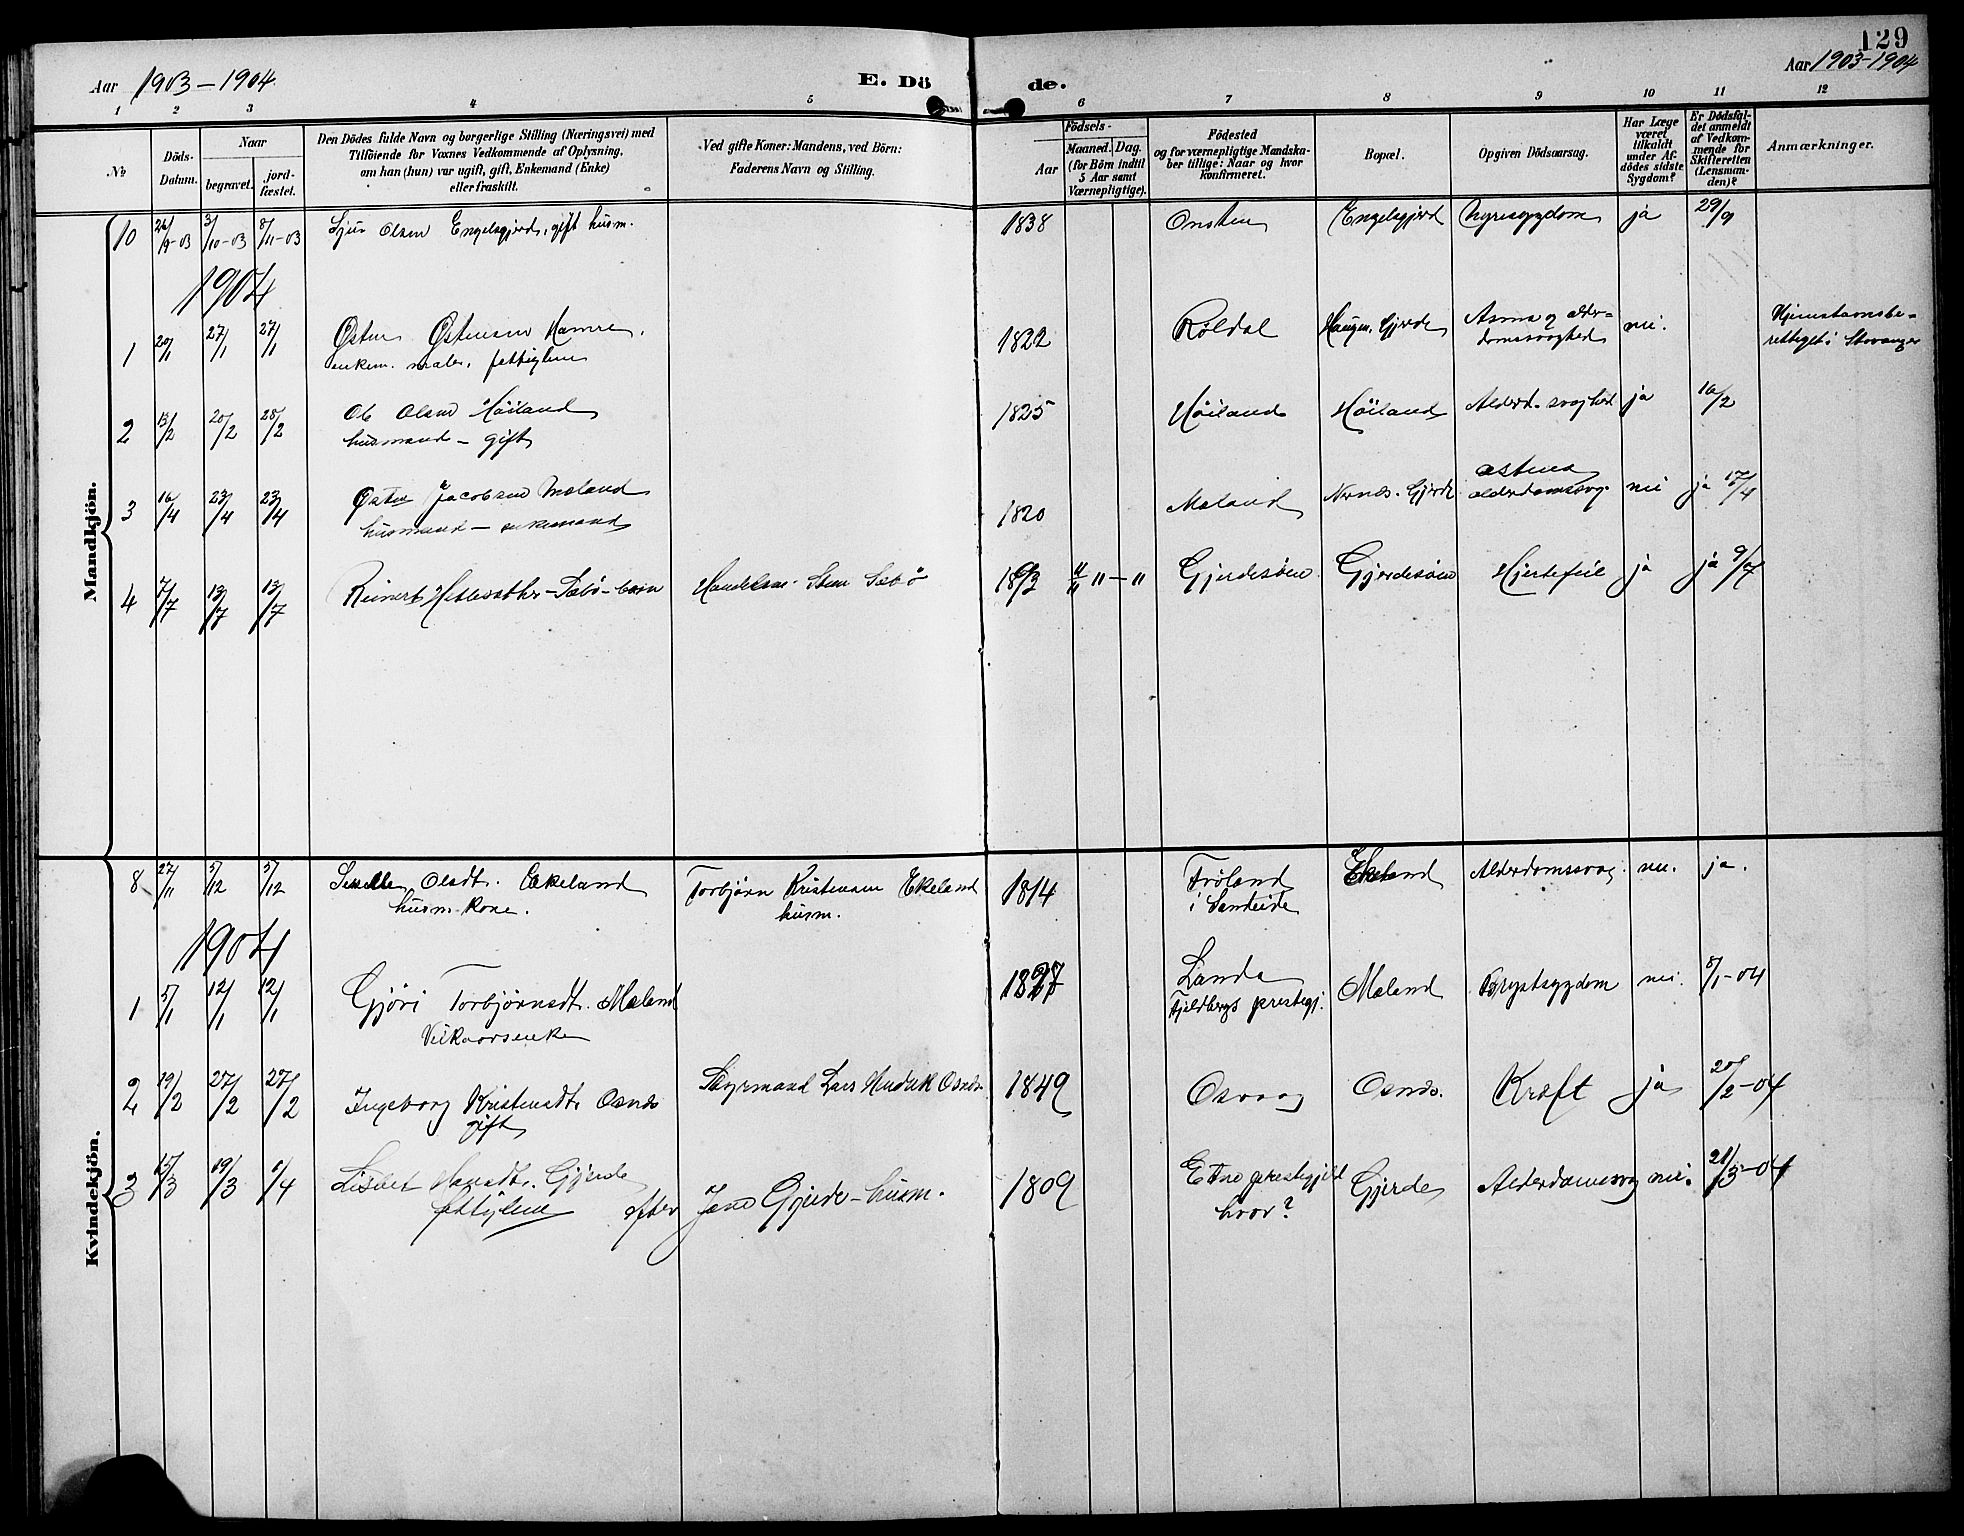 129
Aar 1903-1904
E. Dö de.
Aar 1903-1904
1 2 3 4 5 6 7 8 9 10 11 12
No
Döds-
Datum.
Naar
begravet.
jord-
fæstet.
Den Dödes fulde Navn og borgerlige Stilling (Næringsvei) med
Tilföiende for Voxnes Vedkommende af Oplysning,
om han (hun) var ugift, gift, Enkemand (Enke)
eller fraskilt.
Ved gifte Koner: Mandens, ved Börn:
Faderens Navn og Stilling.
Födsels-
Aar
Maaned. Dag.
(for Börn indtil
5 Aar samt
Værnepligtige).
Födested
og for værnepligtige Mandska-
ber tillige: Naar og hvor
konfirmeret.
Bopæl.
Opgiven Dödsaarsag.
Har Læge
været
tilkaldt
under Af-
dödes sidste
Sygdom?
Er Dödsfal-
det anmeldt
af Vedkom-
mende for
Skifteretten
(Lensman-
den)?
Anmærkninger.
Mandkjön.
10 26/9-03 3/10-03 8/11-03 Sjur Olsen Engelsgjerd, gift husm. 1838 Onsten Engelsgjerd Nyresygdom ja 29/9
1904
1 20/1 27/1 27/1 Østen Østensen Hamre, 1822 Røldal Haugen, Gjerde Asma og alder- nei. Hjemstavnsbe-
enkem. maler, fattiglem domssvaghed rettiget i Stavanger
2 13/2 20/2 28/2 Ole Olsen Høiland 1825 Høiland Høiland Alderd. svaghed ja 16/2
husmand - gift
3 16/4 23/4 23/4 Østen Jacobsen Mæland 1820 Mæland Nernæs. Gjerde astma nei ja 17/4
husmand - enkemand alderdomssvag.
4 7/7 13/7 13/7 Reinert Hetlesæther - Sæbø - barn Handelsm. Sten Sæbø 1903 11/11 " - " Gjerdesøen Gjerdesøen Hjertefeil ja ja 9/7
Kvindekjön.
8 27/11 5/12 5/12 Olsdt. Ekeland Torbjørn Kristensen Ekeland 1814 Frøland Ekeland Alderdomssvag nei. ja.
husm. kone. husm. i Sandeide
1904
1 5/1 12/1 12/1 Gjøri Torbjørnsdt. Mæland 1827 Landa Mæland Brystsygdom nei. 8/1-04
Vilkaarsenke Fjeldbergs prestegj.
2 19/2 27/2 27/2 Ingeborg Kristensdt. Osnæs Styrmand Lars Osnæs 1849 Osvaag Osnæs. Kræft ja 20/2-04
gift
3 15/3 19/3 1/4 Lisbet Hansdt. Gjerde 1809 Etne prestegjeld Gjerde Alderdomssvag nei. 21/3-04
fattiglem efter Jens Gjerde - husm. hvor?